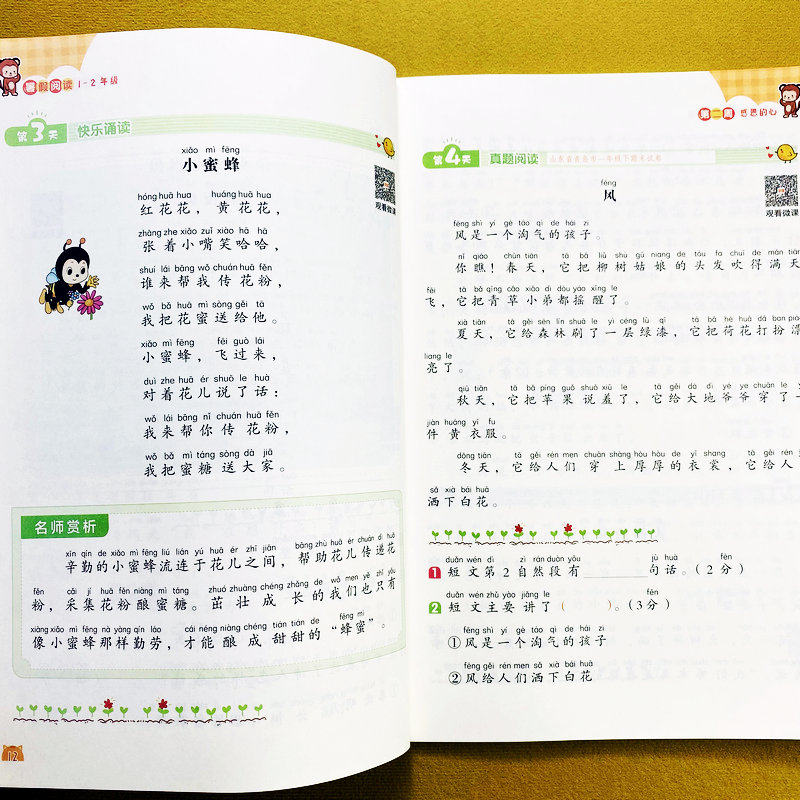 暑假阅读 1-2年级
第3天 快乐诵读
xiǎo mì fēng
小蜜蜂
观看微课
hóng huā hua huáng huā hua
红花花，黄花花，
zhāng zhe xiǎo zuǐ xiào hā hā
张着小嘴笑哈哈，
shuí lái bāng wǒ chuán huā fěn
谁来帮我传花粉，
wǒ bǎ huā mì sòng gěi tā
我把花蜜送给他。
xiǎo mì fēng fēi guò lái
小蜜蜂，飞过来，
duì zhe huā ér shuō le huà
对着花儿说了话：
wǒ lái bāng nǐ chuán huā fěn
我来帮你传花粉，
wǒ bǎ mì táng sòng dà jiā
我把蜜糖送大家。
名师赏析
xīn qín de xiǎo mì fēng liú lián yú huā ér zhī jiān bāng zhù huā ér chuán dì huā
辛勤的小蜜蜂流连于花儿之间，帮助花儿传递花
fěn cǎi jí huā fěn niàng mì táng zhuó zhuàng chéng zhǎng de wǒ men yě zhǐ yǒu
粉，采集花粉酿蜜糖。茁壮成长的我们也只有
xiàng xiǎo mì fēng nà yàng qín láo cái néng niàng chéng tián tián de fēng mì
像小蜜蜂那样勤劳，才能酿成甜甜的“蜂蜜”。
12
第二周 感恩的心
第4天 真题阅读 山东省青岛市一年级下期末试卷
fēng
风
观看微课
fēng shì yí gè táo qì de hái zi
风是一个淘气的孩子。
nǐ qiáo chūn tiān tā bǎ liǔ shù gū niang de tóu fa chuī de mǎn tiān
你瞧！春天，它把柳树姑娘的头发吹得满天
fēi tā bǎ qīng cǎo xiǎo dì dōu yáo xǐng le
飞，它把青草小弟都摇醒了。
xià tiān tā gěi sēn lín shuā le yì céng lǜ qī tā bǎ hé huā dǎ ban piào
夏天，它给森林刷了一层绿漆，它把荷花打扮漂
liang le
亮了。
qiū tiān tā bǎ píng guǒ shuō xiū le tā gěi dà dì yé ye chuān le yí
秋天，它把苹果说羞了，它给大地爷爷穿了一
jiàn huáng yī fu
件黄衣服。
dōng tiān tā gěi rén men chuān shàng hòu hòu de yī shang tā gěi rén
冬天，它给人们穿上厚厚的衣裳，它给人
sǎ xià bái huā
洒下白花。
duǎn wén dì zì rán duàn yǒu jù huà fēn
1 短文第2自然段有________句话。（2分）
duǎn wén zhǔ yào jiǎng le fēn
2 短文主要讲了（ ）。（3分）
fēng shì yí gè táo qì de hái zi
①风是一个淘气的孩子
fēng gěi rén men sǎ xià bái huā
②风给人们洒下白花